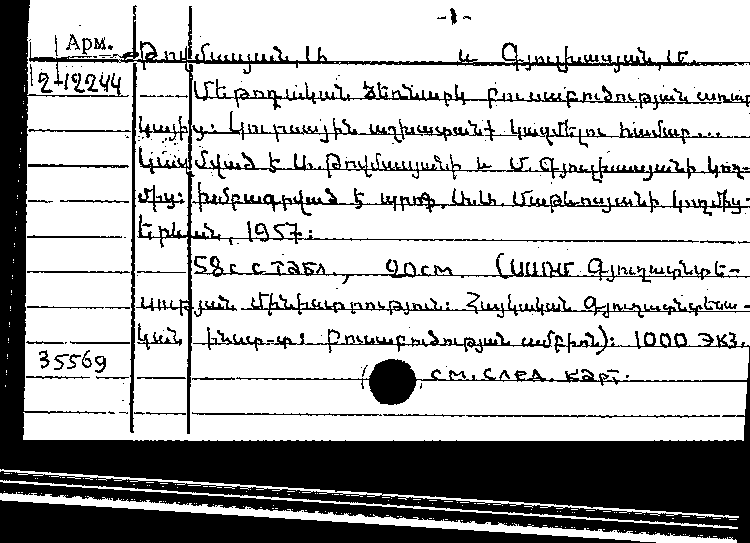 -1-
Арм.
Թովմասյան, Ա և Գյուլխասյան, Մ.
2-12244
Մեթոդական ձեռնարկ բուսաբուծության առար
կայից: Կուրսային աշխատանք կազմելու համար...
Կազմված է Ա. Թովմասյանի և Մ. Գյուլխասյանի կող-
մից: խմբագրված է պրոֆ. Ա. Մաթևոսյանի կողմից-
Երևան, 1957:
58с с табл., 20см. (ՍՍՌՄ Գյուղատնտե-
սության Մինիստրություն: Հայկական Գյուղատնտեսա-
կան ինստ-տ: Բուսաբուծության ամբիոն): 1000 экз.
35569
см. след. карт.